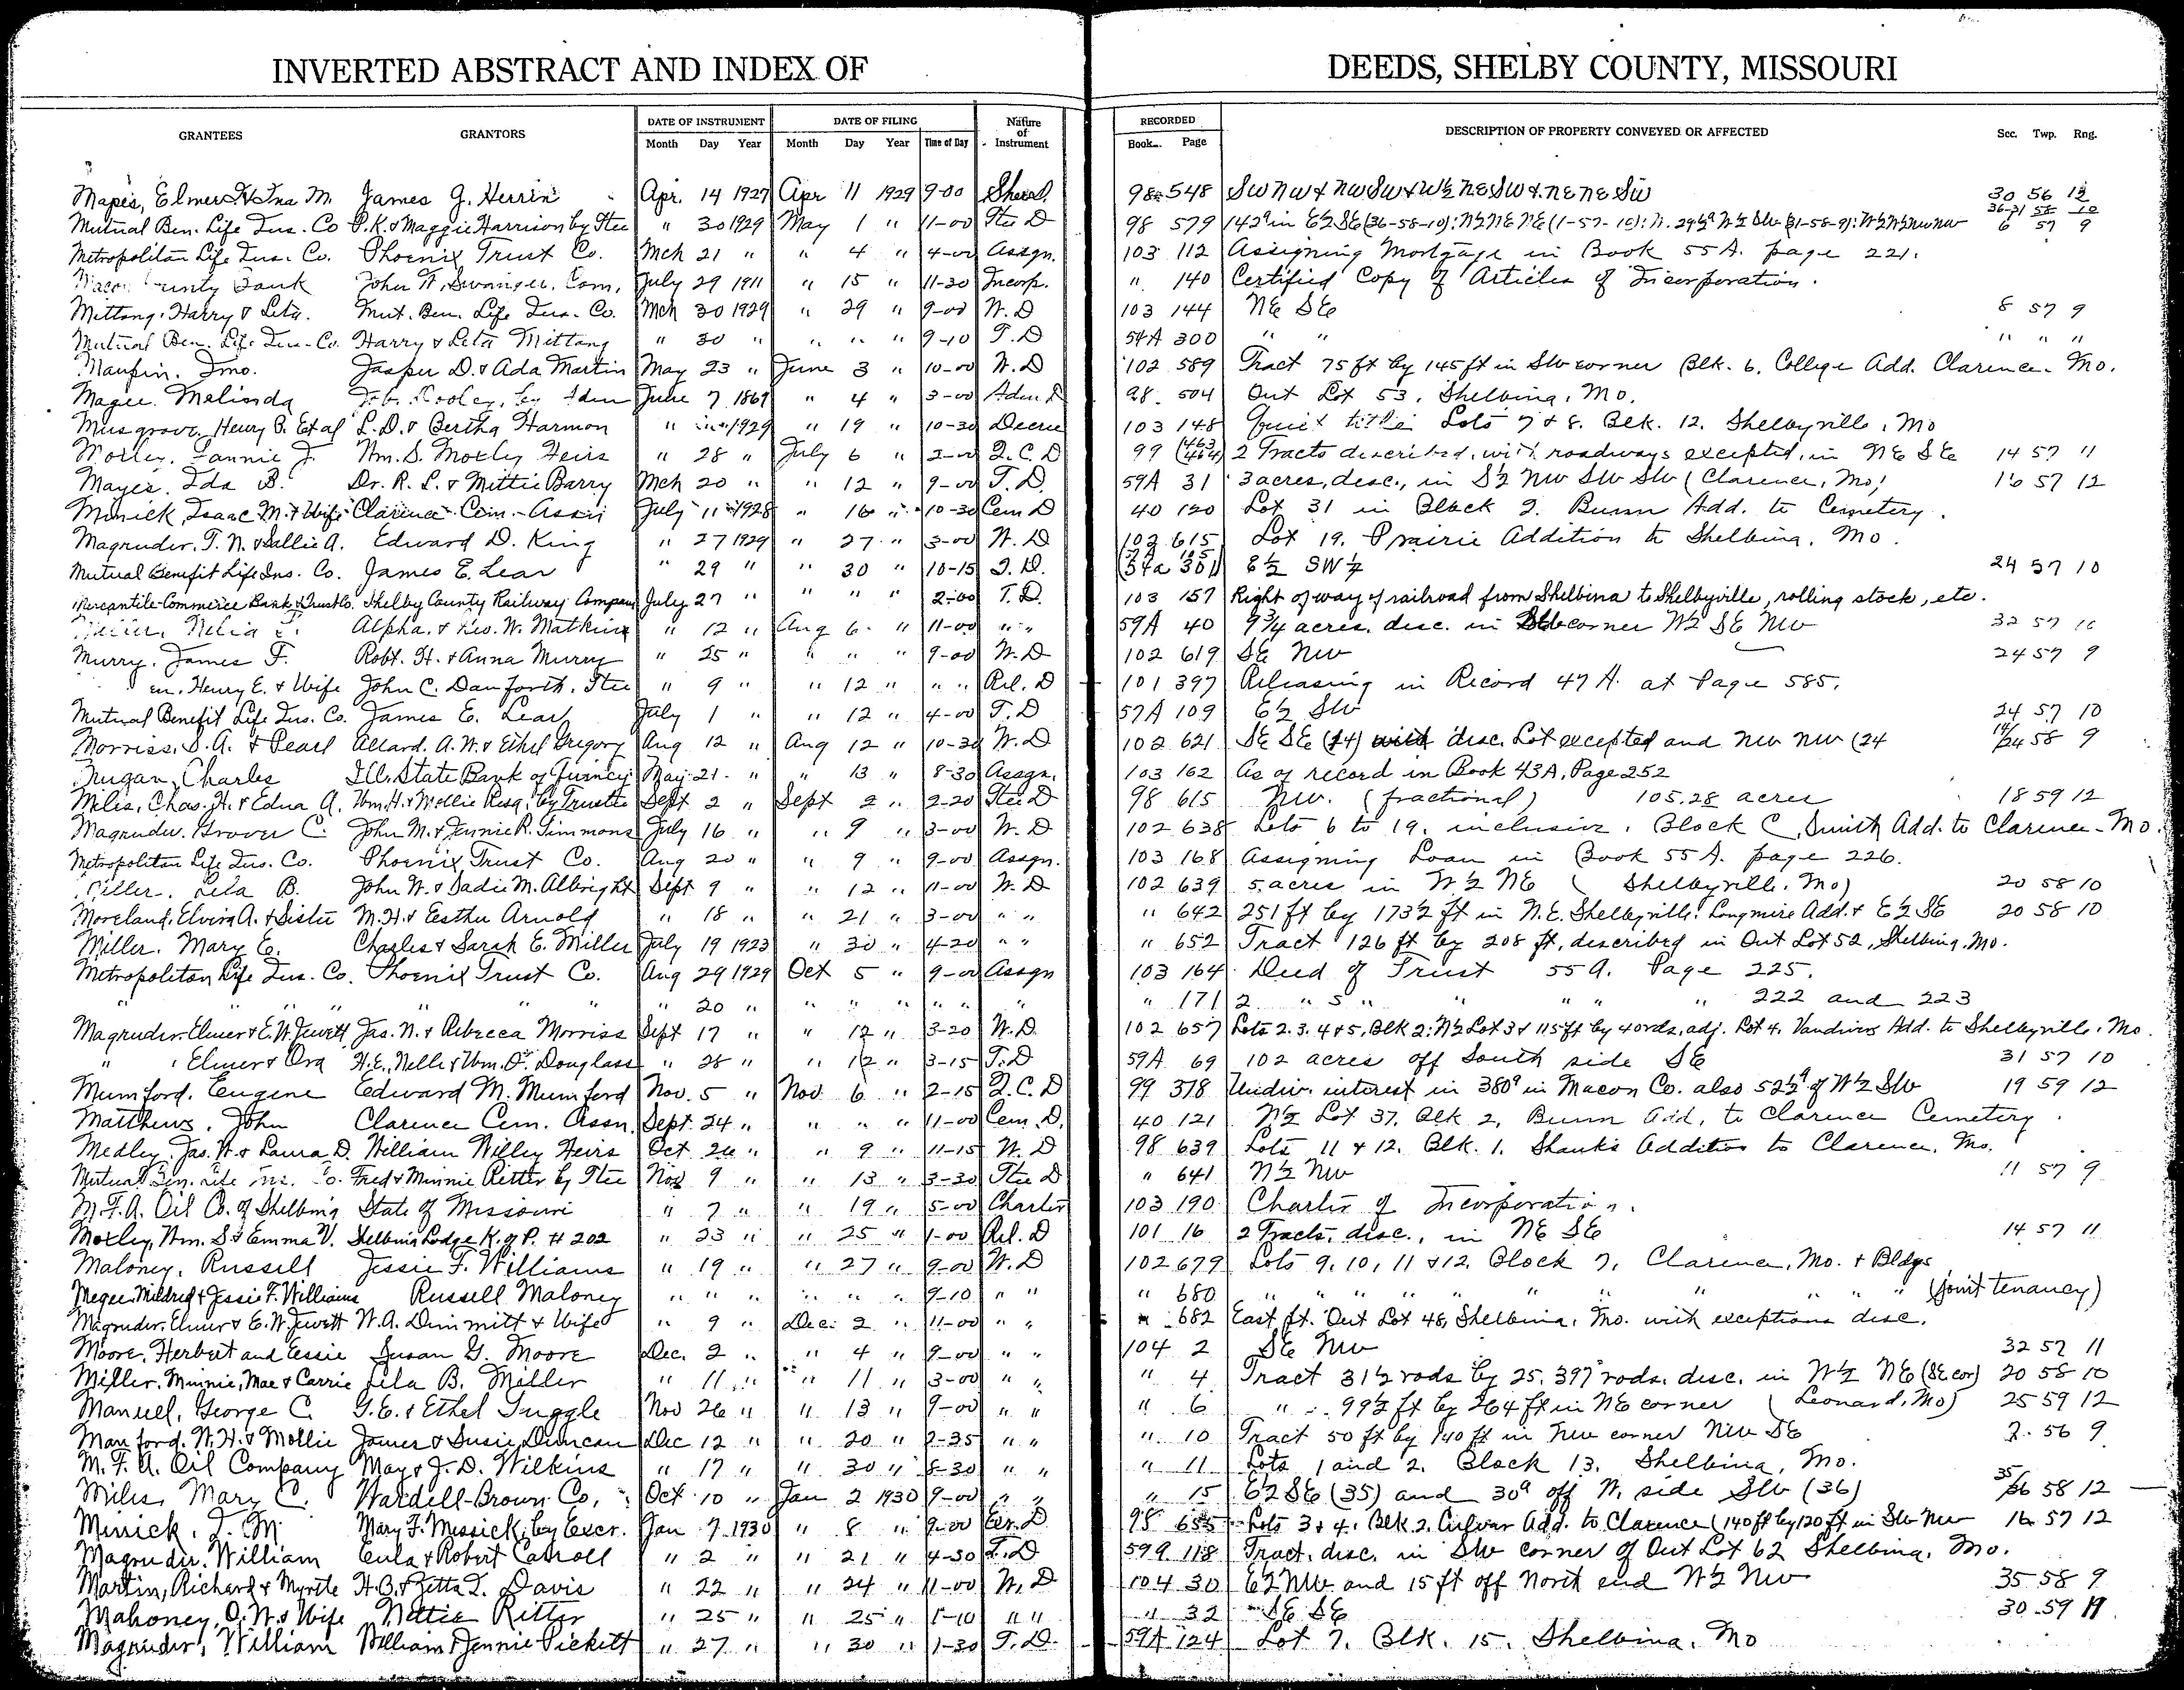 INVERTED ABSTRACT AND INDEX OF DEEDS, SHELBY COUNTY, MISSOURI
GRANTEES GRANTORS DATE OF INSTRUMENT DATE OF FILING Nature of Instrument RECORDED DESCRIPTION OF PROPERTY CONVEYED OR AFFECTED Sec. Twp. Rng.
Month Day Year Month Day Year Time of Day Book Page
Mapes, Elmer & Ina M. James G. Herrin Apr. 14 1927 Apr 11 1929 9-00 98 548 SW NW & NW SW & W½ NE SW & NE NE SW 30 56 12
Mutual Ben. Life Ins. Co P.K. & Maggie Harrison by Stee " 30 1929 May 1 " 11-00 Stee D 98 579 142ᵃ in E½ SE (36-58-10): N½ NE NE (1-57-10): N. 29½ᵃ W½ SW (31-58-9): W½ N½ NW NW 6 57 9
Metropolitan Life Ins. Co. Phoenix Trust Co. Mch 21 " " 4 " 4-00 Assgn. 103 112 Assigning Mortgage in Book 55A. page 221.
Bank John Swanger, Com. July 29 1911 " 15 " 11-30 Incorp. " 140 Certified Copy of Articles of Incorporation.
Mittong, Harry & Leta. Mut. Ben. Life Ins. Co. Mch 30 1929 " 29 " 9-00 W.D 103 144 NE SE 8 57 9
Mutual Ben. Life Ins. Co. Harry & Leta Mittong " 30 " " " " 9-10 T.D 54A 300 " " " " "
Maupin, Jno. Jasper D. & Ada Martin May 23 " June 3 " 10-00 W.D 102 589 Tract 75 ft by 145 ft in SW corner Blk. 6, College Add. Clarence, Mo.
Magee, Melinda Cooley, by Adm June 7 1869 " 4 " 3-00 Adm D 98 504 Out Lot 53, Shelbina, Mo.
Musgrove, Henry B. Et al L.D. & Bertha Harmon " 1929 " 19 " 10-30 Decree 103 148 Quiet title Lots 7 & 8. Blk. 12. Shelbyville, Mo
Moxley, Fannie J. Wm. S. Moxley Heirs " 28 " July 6 " 2-00 Q.C.D 99 (463 464) 2 Tracts described, with roadways excepted, in NE SE 14 57 11
Mayes, Ida B. Dr. R.L. & Mittie Barry Mch 20 " " 12 " 9-00 T.D. 59A 31 3 acres, desc., in S½ NW SW SW (Clarence, Mo) 16 57 12
Minick, Isaac M. & Wife Clarence Cem. Assn July 11 1928 " 16 " 10-30 Cem D 40 120 Lot 31 in Block 2. Bunn Add. to Cemetery.
Magruder, T.N. & Sallie A. Edward D. King " 27 1929 " 27 " 3-00 W.D 102 615 Lot 19. Prairie Addition to Shelbina, Mo.
Mutual Benefit Life Ins. Co. James E. Lear " 29 " " 30 " 10-15 T.D. E½ SW¼ 24 57 10
Mercantile-Commerce Bank & Trust Co. Shelby County Railway Company July 27 " " " " 2-00 T.D. 103 157 Right of way of railroad from Shelbina to Shelbyville, rolling stock, etc.
Alpha & Matkins " 12 " Aug 6 " 11-00 " " 59A 40 9¾ acres, disc. in corner W½ SE NW 32 57
Murry, James F. Robt. H. & Anna Murry " 25 " " " " 9-00 W.D 102 619 SE NW 24 57 9
Henry E. & Wife John C. Danforth, Stee " 9 " " 12 " " " Rel. D 101 397 Releasing in Record 47A. at Page 585.
Mutual Benefit Life Ins. Co. James E. Lear July 1 " " 12 " 4-00 T.D 57A 109 E½ SW 24 57 10
Morriss, S.A. & Pearl Allard, A.W. & Ethel Gregory Aug 12 " Aug 12 " 10-30 W.D 102 621 SE SE (14) disc. Lot excepted and NW NW (24 14/24 58 9
Charles Ill. State Bank of Quincy May 21 " " 13 " 8-30 Assgn. 103 162 As of record in Book 43A, Page 252
Miles, Chas. H. & Edna A. Wm. H. & Mollie by Trustee Sept 2 " Sept 2 " 2-20 Stee D 98 615 NW. (fractional) 105.28 acres 18 59 12
Magruder, Grover C. John M. & Jennie R. Timmons July 16 " " 9 " 3-00 W.D 102 638 Lots 6 to 19. inclusive, Block C, Smith Add. to Clarence, Mo.
Metropolitan Life Ins. Co. Phoenix Trust Co. Aug 20 " " 9 " 9-00 Assgn. 103 168 Assigning Loan in Book 55A. page 226.
Miller, Lela B. John W. & Sadie M. Albright Sept 9 " " 12 " 11-00 W.D 102 639 5 acres in W½ NE (Shelbyville, Mo) 20 58 10
Moreland, Elvira A. & Sister M.H. & Esther Arnold " 18 " " 21 " 3-00 " " " 642 251 ft by 173½ ft in N.E. Shelbyville, Longmire Add. & E½ SE 20 58 10
Miller, Mary E. Charles & Sarah E. Miller July 19 1923 " 30 " 4-20 " " " 652 Tract 126 ft by 208 ft, described in Out Lot 52, Shelbina, Mo.
Metropolitan Life Ins. Co. Phoenix Trust Co. Aug 29 1929 Oct 5 " 9-00 Assgn 103 164 Deed of Trust 55A. Page 225.
" " " " " " " " 20 " " " " " " " " 171 2 " s " " " " " 222 and 223
Magruder, Elmer & E.W. Jewett Jas. N. & Rebecca Morriss Sept 17 " " 12 " 3-20 W.D. 102 657 Lots 2.3.4 & 5, Blk 2: N½ Lot 3 & 115 ft by 40 rds, adj. Lot 4. Vandivers Add. to Shelbyville, Mo.
" Elmer & Ora H.E., Nelle & Wm. O. Douglass " 28 " " 12 " 3-15 T.D 59A 69 102 acres off South side SE 31 57 10
Mumford, Eugene Edward M. Mumford Nov. 5 " Nov 6 " 2-15 Q.C.D 99 378 Undiv. interest in 380ᵃ in Macon Co. also 52½ᵃ of W½ SW 19 59 12
Matthews, John Clarence Cem. Assn. Sept. 24 " " " " 11-00 Cem. D. 40 121 N½ Lot 37, Blk 2, Bunn Add. to Clarence Cemetery.
Medley, Jas. W. & Laura D. William Willey Heirs Oct 26 " " 9 " 11-15 W.D 98 639 Lots 11 & 12. Blk. 1. Shanks Addition to Clarence, Mo.
Mutual Ben. Life Ins. Co. Fred & Minnie Ritter by Stee Nov 9 " " 13 " 3-30 Stee D " 641 N½ NW 11 57 9
M.F.A. Oil Co. of Shelbina State of Missouri " 7 " " 19 " 5-00 Charter 103 190 Charter of Incorporation.
Moxley, Wm. S. & Emma V. Shelbina Lodge K. of P. # 202 " 23 " " 25 " 1-00 Rel. D 101 16 2 Tracts, disc., in NE SE 14 57 11
Maloney, Russell Jessie F. Williams " 19 " " 27 " 9-00 W.D 102 679 Lots 9, 10, 11 & 12, Block 7, Clarence, Mo. & Bldgs
Megee, Mildred & Jessie F. Williams Russell Maloney " " " " " " 9-10 " " " 680 " " " " " " " " " (joint tenancy)
Magruder, Elmer & E.W. Jewett W.A. Dimmitt & Wife " 9 " Dec. 2 " 11-00 " " " 682 East pt. Out Lot 48, Shelbina, Mo. with exceptions disc.
Moore, Herbert and Essie Susan G. Moore Dec. 2 " " 4 " 9-00 " " 104 2 SE NW 32 57 11
Miller, Minnie, Mae & Carrie Lela B. Miller " 11 " " 11 " 3-00 " " " 4 Tract 31½ rods by 25.397 rods, disc. in W½ NE (SE cor) 20 58 10
Manuel, George C. G.E. & Ethel Tuggle Nov 26 " " 13 " 9-00 " " " 6 " 99½ ft by 264 ft in NE corner (Leonard, Mo) 25 59 12
Manford, W.H. & Mollie James & Susie Duncan Dec 12 " " 20 " 2-35 " " " 10 Tract 50 ft by 140 ft in NW corner NW SE 2 56 9
M.F.A. Oil Company May & J.D. Wilkins " 17 " " 30 " 8-30 " " " 11 Lots 1 and 2. Block 13. Shelbina, Mo.
Miles, Mary C. Wardell-Brown Co. Oct 10 " Jan 2 1930 9-00 " " " 15 E½ SE (35) and 30ᵃ off W. side SW (36) 35/36 58 12
Minick, I.M. Mary F. Messick, by Excr. Jan 7 1930 " 8 " 9-00 Exr. D 98 655 Lots 3 & 4. Blk 2, Culver Add. to Clarence (140 ft by 120 ft in SW NW 16 57 12
Magruder, William Eula & Robert Carroll " 2 " " 21 " 4-30 T.D 59A 118 Tract, disc. in SW corner of Out Lot 62 Shelbina, Mo.
Martin, Richard & Myrtle H.B. & Zetta I. Davis " 22 " " 24 " 11-00 W.D 104 30 E½ NW and 15 ft off North end W½ NW 35 58 9
Mahoney, O.W. & Wife Nettie Ritter " 25 " " 25 " 1-10 " " " 32 SE SE 30 59 11
Magruder, William William & Jennie Pickett " 27 " " 30 " 1-30 T.D. 59A 124 Lot 7, Blk. 15, Shelbina, Mo